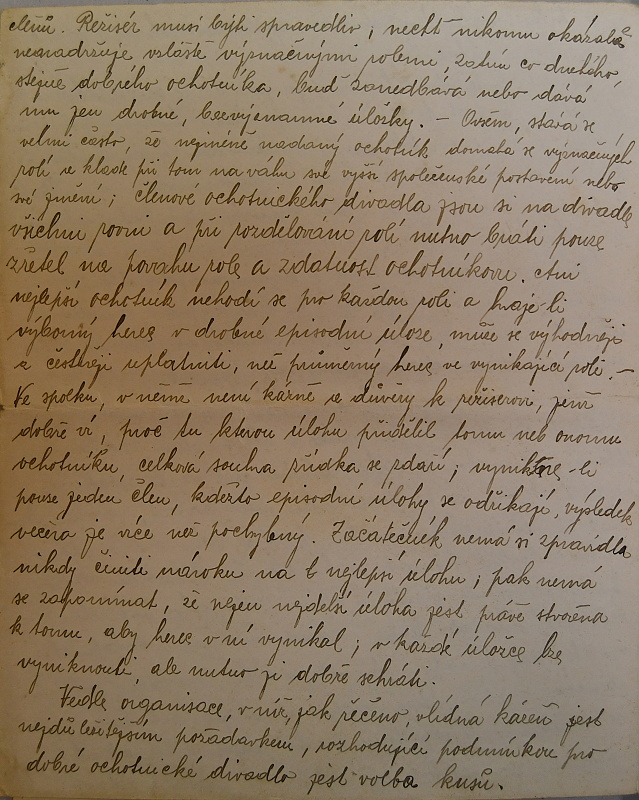 členů. Režisér musí býti spravedliv; nechť nikomu okázale
nenadržuje vzláště význačnými rolemi, zatím co druhého,
stejně dobrého ochotníka, buď zanedbává nebo dává
mu jen drobné, bezvýznamné úložky. – Ovšem, stává se
velmi často, že nejméně nadaný ochotník domáhá se význačných
rolí a klade při tom na váhu své vyšší společenské postavení nebo
své jmění; členové ochotnického divadla jsou si na divadle
všichni rovni a při rozdělování rolí nutno bráti pouze
zřetel na povahu role a zdatnost ochotníkovu. Ani
nejlepší ochotník nehodí se pro každou roli a hraje-li
výborný herec v drobné episodní úloze, může se výhodněji
a čestněji uplatniti, než průměrný herec ve vynikající roli. –
Ve spolku, v němž není kázně a důvěry k režiserovi, jenž
dobře ví, proč tu kterou úlohu přidělil tomu neb onomu
ochotníku, celková souhra zřídka se zdaří; vynikne-li
pouze jeden člen, kdežto episodní úlohy se odříkají, výsledek
večera je více než pochybný. Začátečník nemá si zpravidla
nikdy činiti nároku na nejlepší úlohu; pak nemá
se zapomínat, že nejen nejdelší úloha jest právě stvořena
k tomu, aby herec v ní vynikal; v každé úložce lze
vyniknouti, ale nutno ji dobře sehráti.
Vedle organisace, v níž, jak řečeno, vlídná kázeň jest
nejdůležitějším požadavkem, rozhodující podmínkou pro
dobré ochotnické divadlo jest volba kusů.